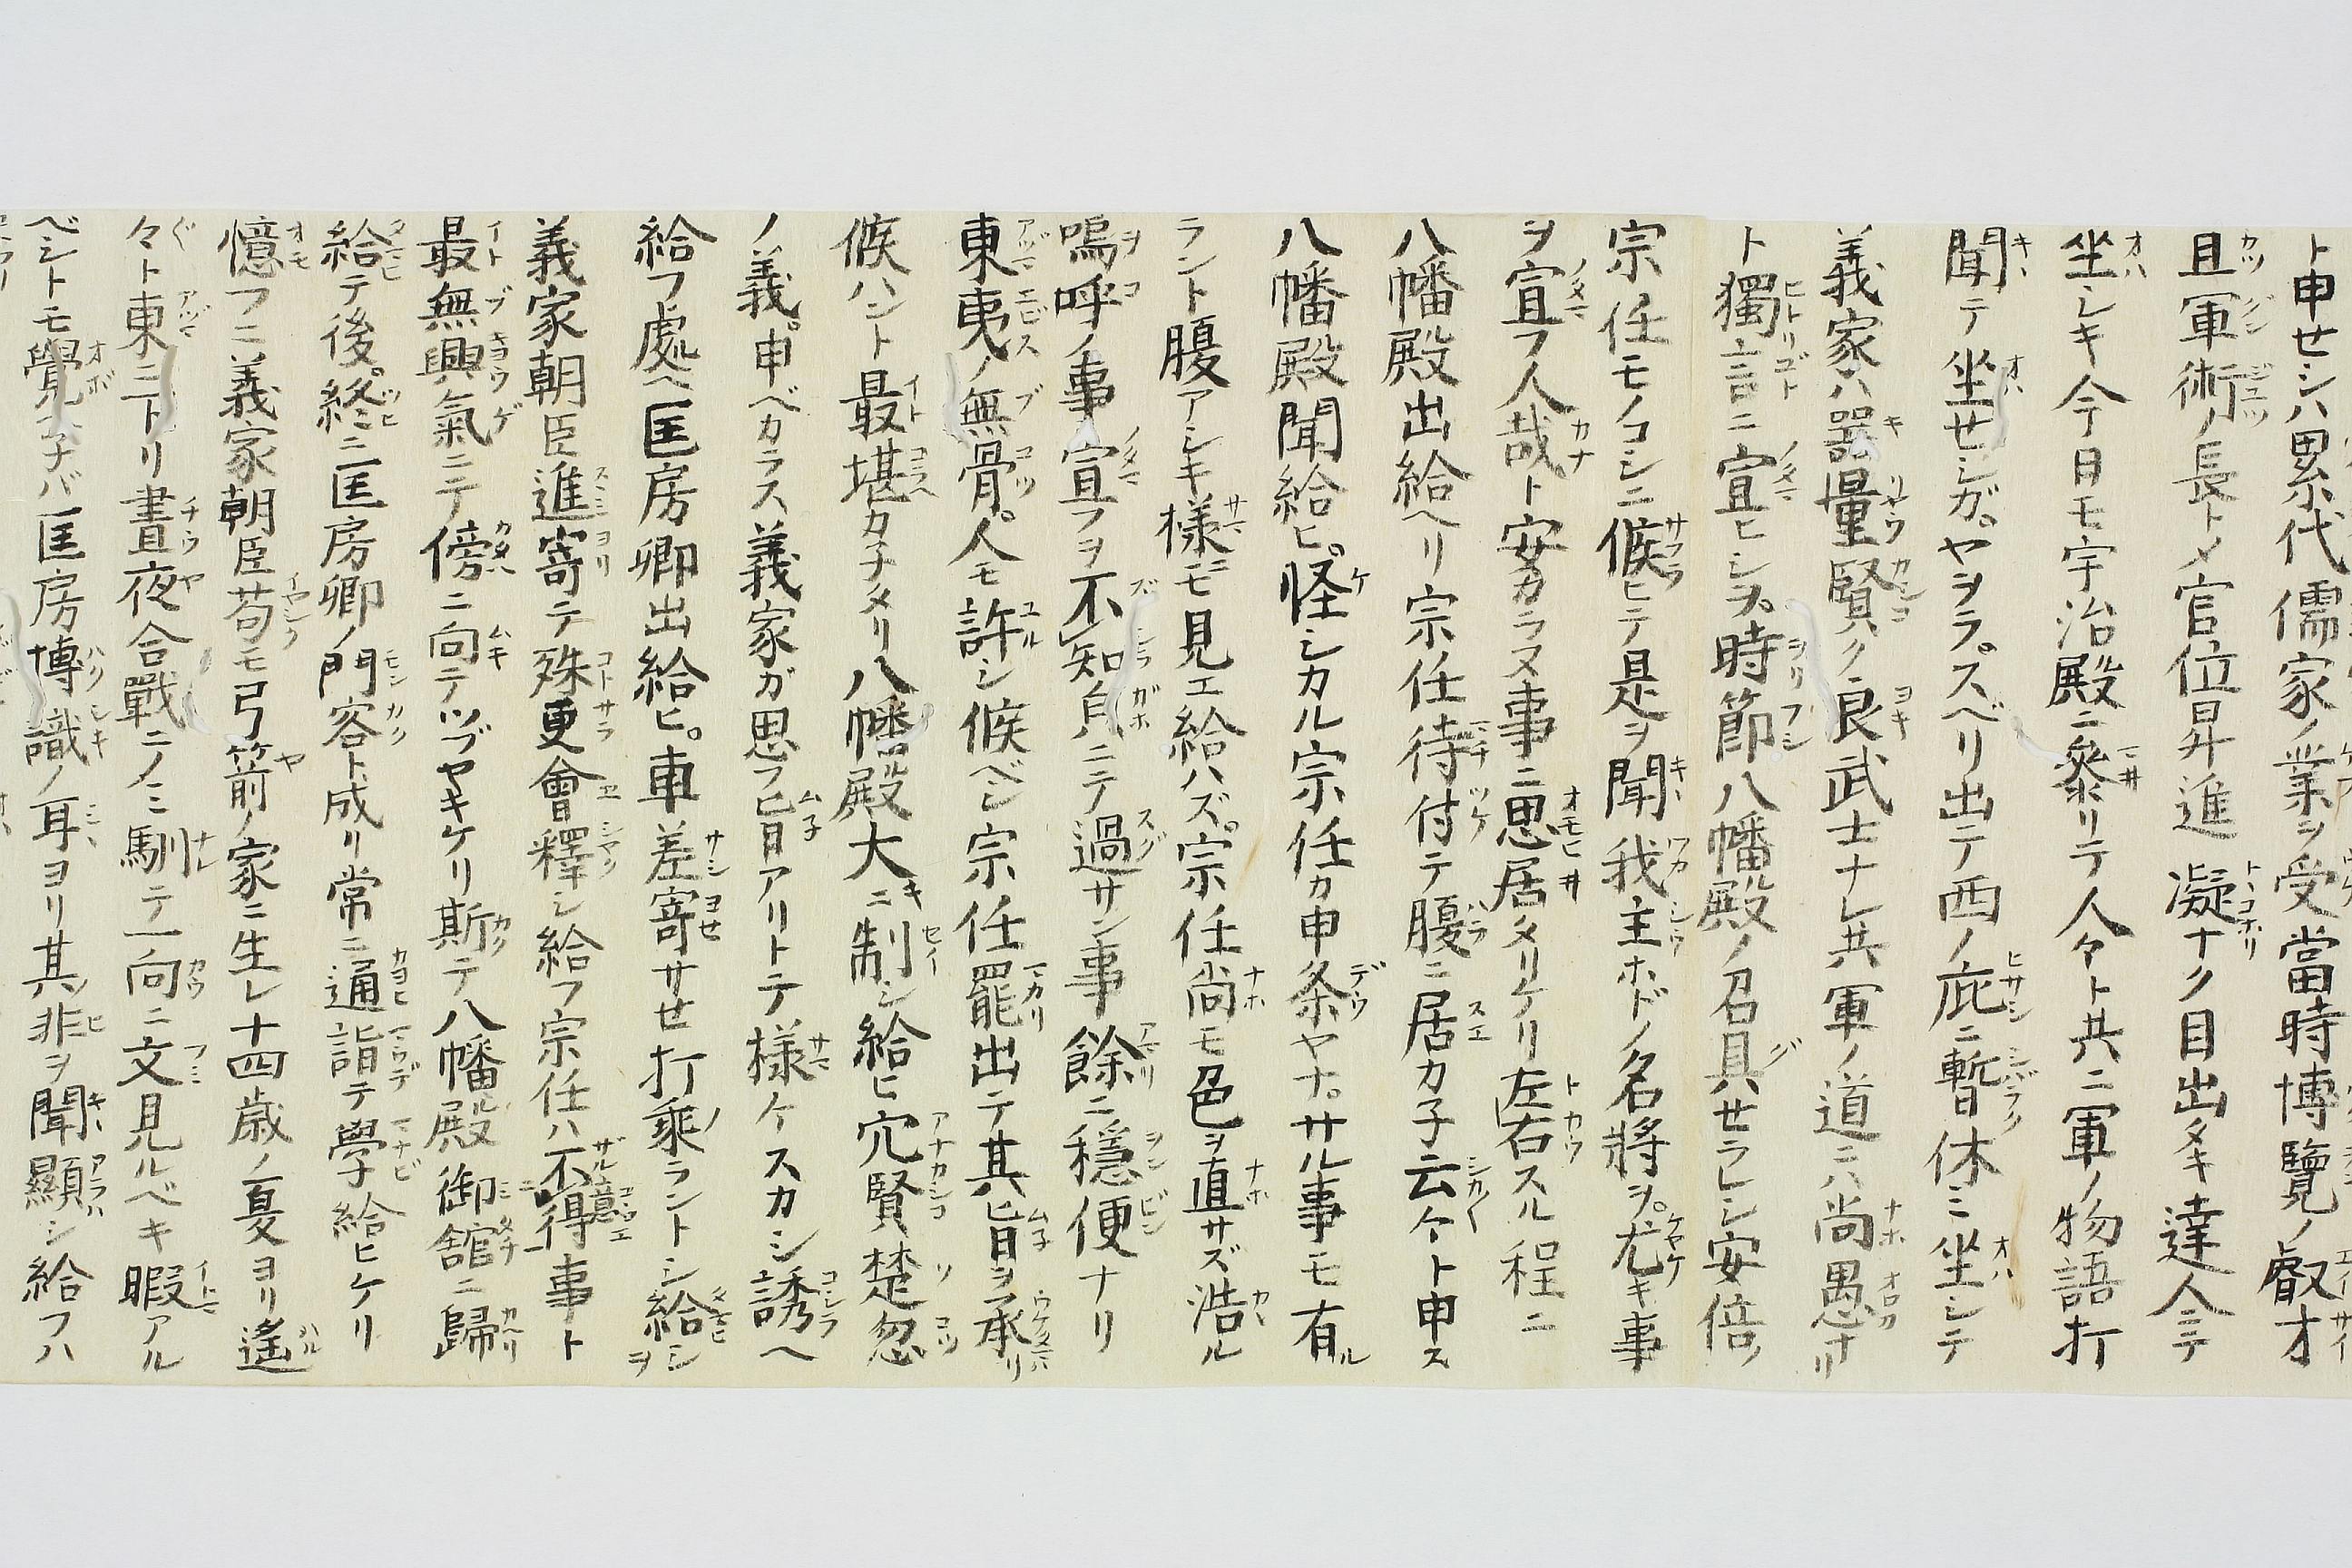 ト申セシハ累代儒家ノ業ヲ受當時博覽ノ叡才
且軍術ノ長トメ官位昇進凝ナク目出タキ達人ニテ
坐シキ今日モ宇治殿ニ參リテ人々ト共ニ軍ノ物語打
聞テ坐セシガ。ヤヲラ。スベリ出テ西ノ庇ニ暫休ミ坐シテ
義家ハ器量賢ク良武士ナレ共軍ノ道ニハ尚愚ナリ
ト獨言ニ宣ヒシヲ。時節八幡殿ノ召具セラレシ安倍ノ
宗任モノコシニ候ヒテ是ヲ聞我主ホドノ名將ヲ。尤キ事
ヲ宣フ人哉ト安カラヌ事ニ思居タリケリ左右スル程ニ
八幡殿出給ヘリ宗任待付テ腹ニ居カ子云々ト申ス
八幡殿聞給ヒ。怪シカル宗任カ申条ヤナ。サル事モ有ル
ラント腹アシキ様ニモ見エ給ハズ。宗任尚モ色ヲ直サズ浩ル
嗚呼ノ事宣フヲ不知負ニテ過サン事餘ニ穏便ナリ
東夷ノ無骨。人モ許シ候ベシ宗任罷出テ其旨ヲ承リ
候ハント最堪カ子メリ八幡殿大ニ制シ給ヒ穴賢楚忽
ノ義。申ベカラス義家ガ思フ旨アリトテ様ケスカシ誘ヘ
給フ處ヘ匡房卿出給ヒ。車差寄サセ打乘ラントシ給シヲ
義家朝臣進寄テ殊更會釋シ給フ宗任ハ不得意事ト
最無興氣ニテ傍ニ向テツブヤキケリ斯テ八幡殿御舘ニ歸
給テ後。終ニ匡房卿ノ門客ト成リ常ニ通詣テ學給ヒケリ
憶フニ義家朝臣苟モ弓箭ノ家ニ生レ十四歳ノ夏ヨリ遙
々ト東ニ下リ晝夜合戰ニノミ馴テ一向ニ文見ルベキ暇アル
ベシトモ覺子バ匡房博識ノ耳ヨリ其非ヲ聞顯シ給フハ